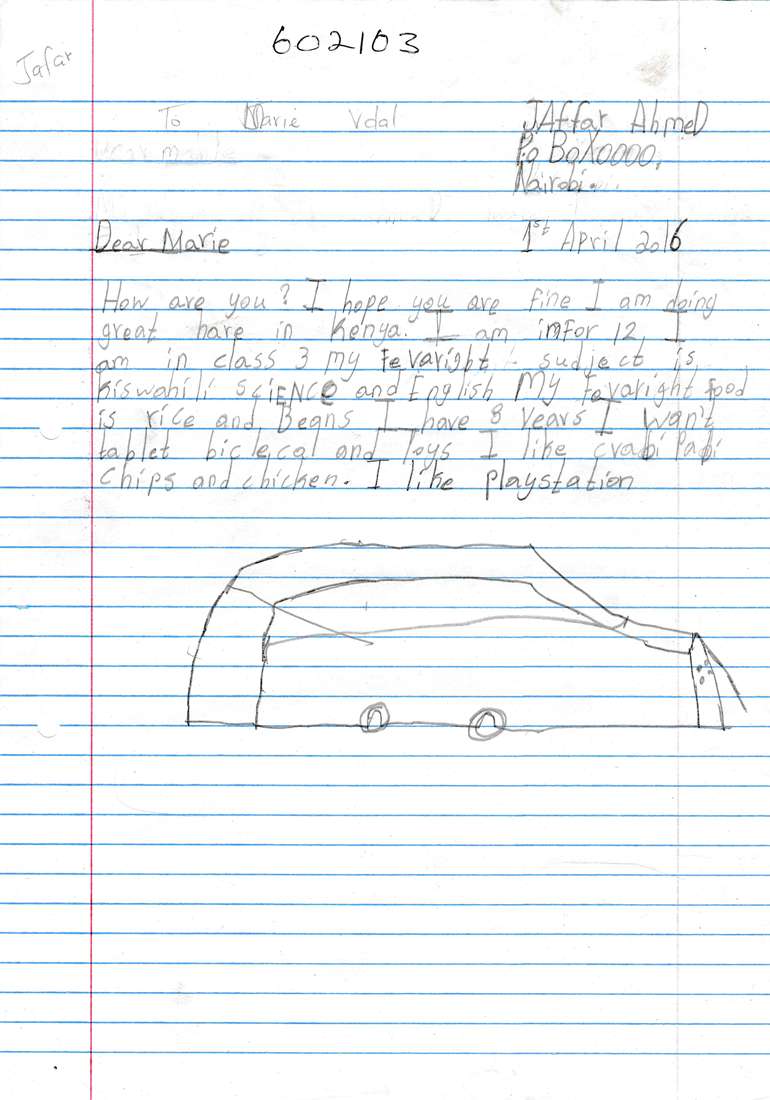 602103
Jafar
To Marie Vdal
JAffar AhmeD
Po BoX0000,
Nairobi.
Dear Marie
1st April 2016
How are you? I hope you are fine I am doing
great hare in Kenya. I am infor 12 I
am in class 3 my Fevaright sudject is
kiswahili sciENCE and English My Favaright food
is rice and Beans I have 8 years I wan't
tablet biclecal and Toys I like crabi Papi
Chips and chicken. I like playstation